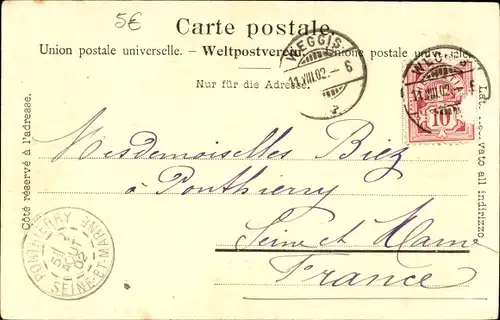 5€
Carte postale.
Union postale universelle. - Weltpostverein. - Unione postale universale.
Nur für die Adresse.
WEGGIS
11.VIII.02.-6
WEGGIS
11.VIII.02.
10
Côté réservé à l'adresse.
Lato riservato all indirizzo
Mesdemoiselles Biez
à Ponthierry
Seine et Marne
France
PONTHIERRY
AOUT
02
SEINE-ET-MARNE